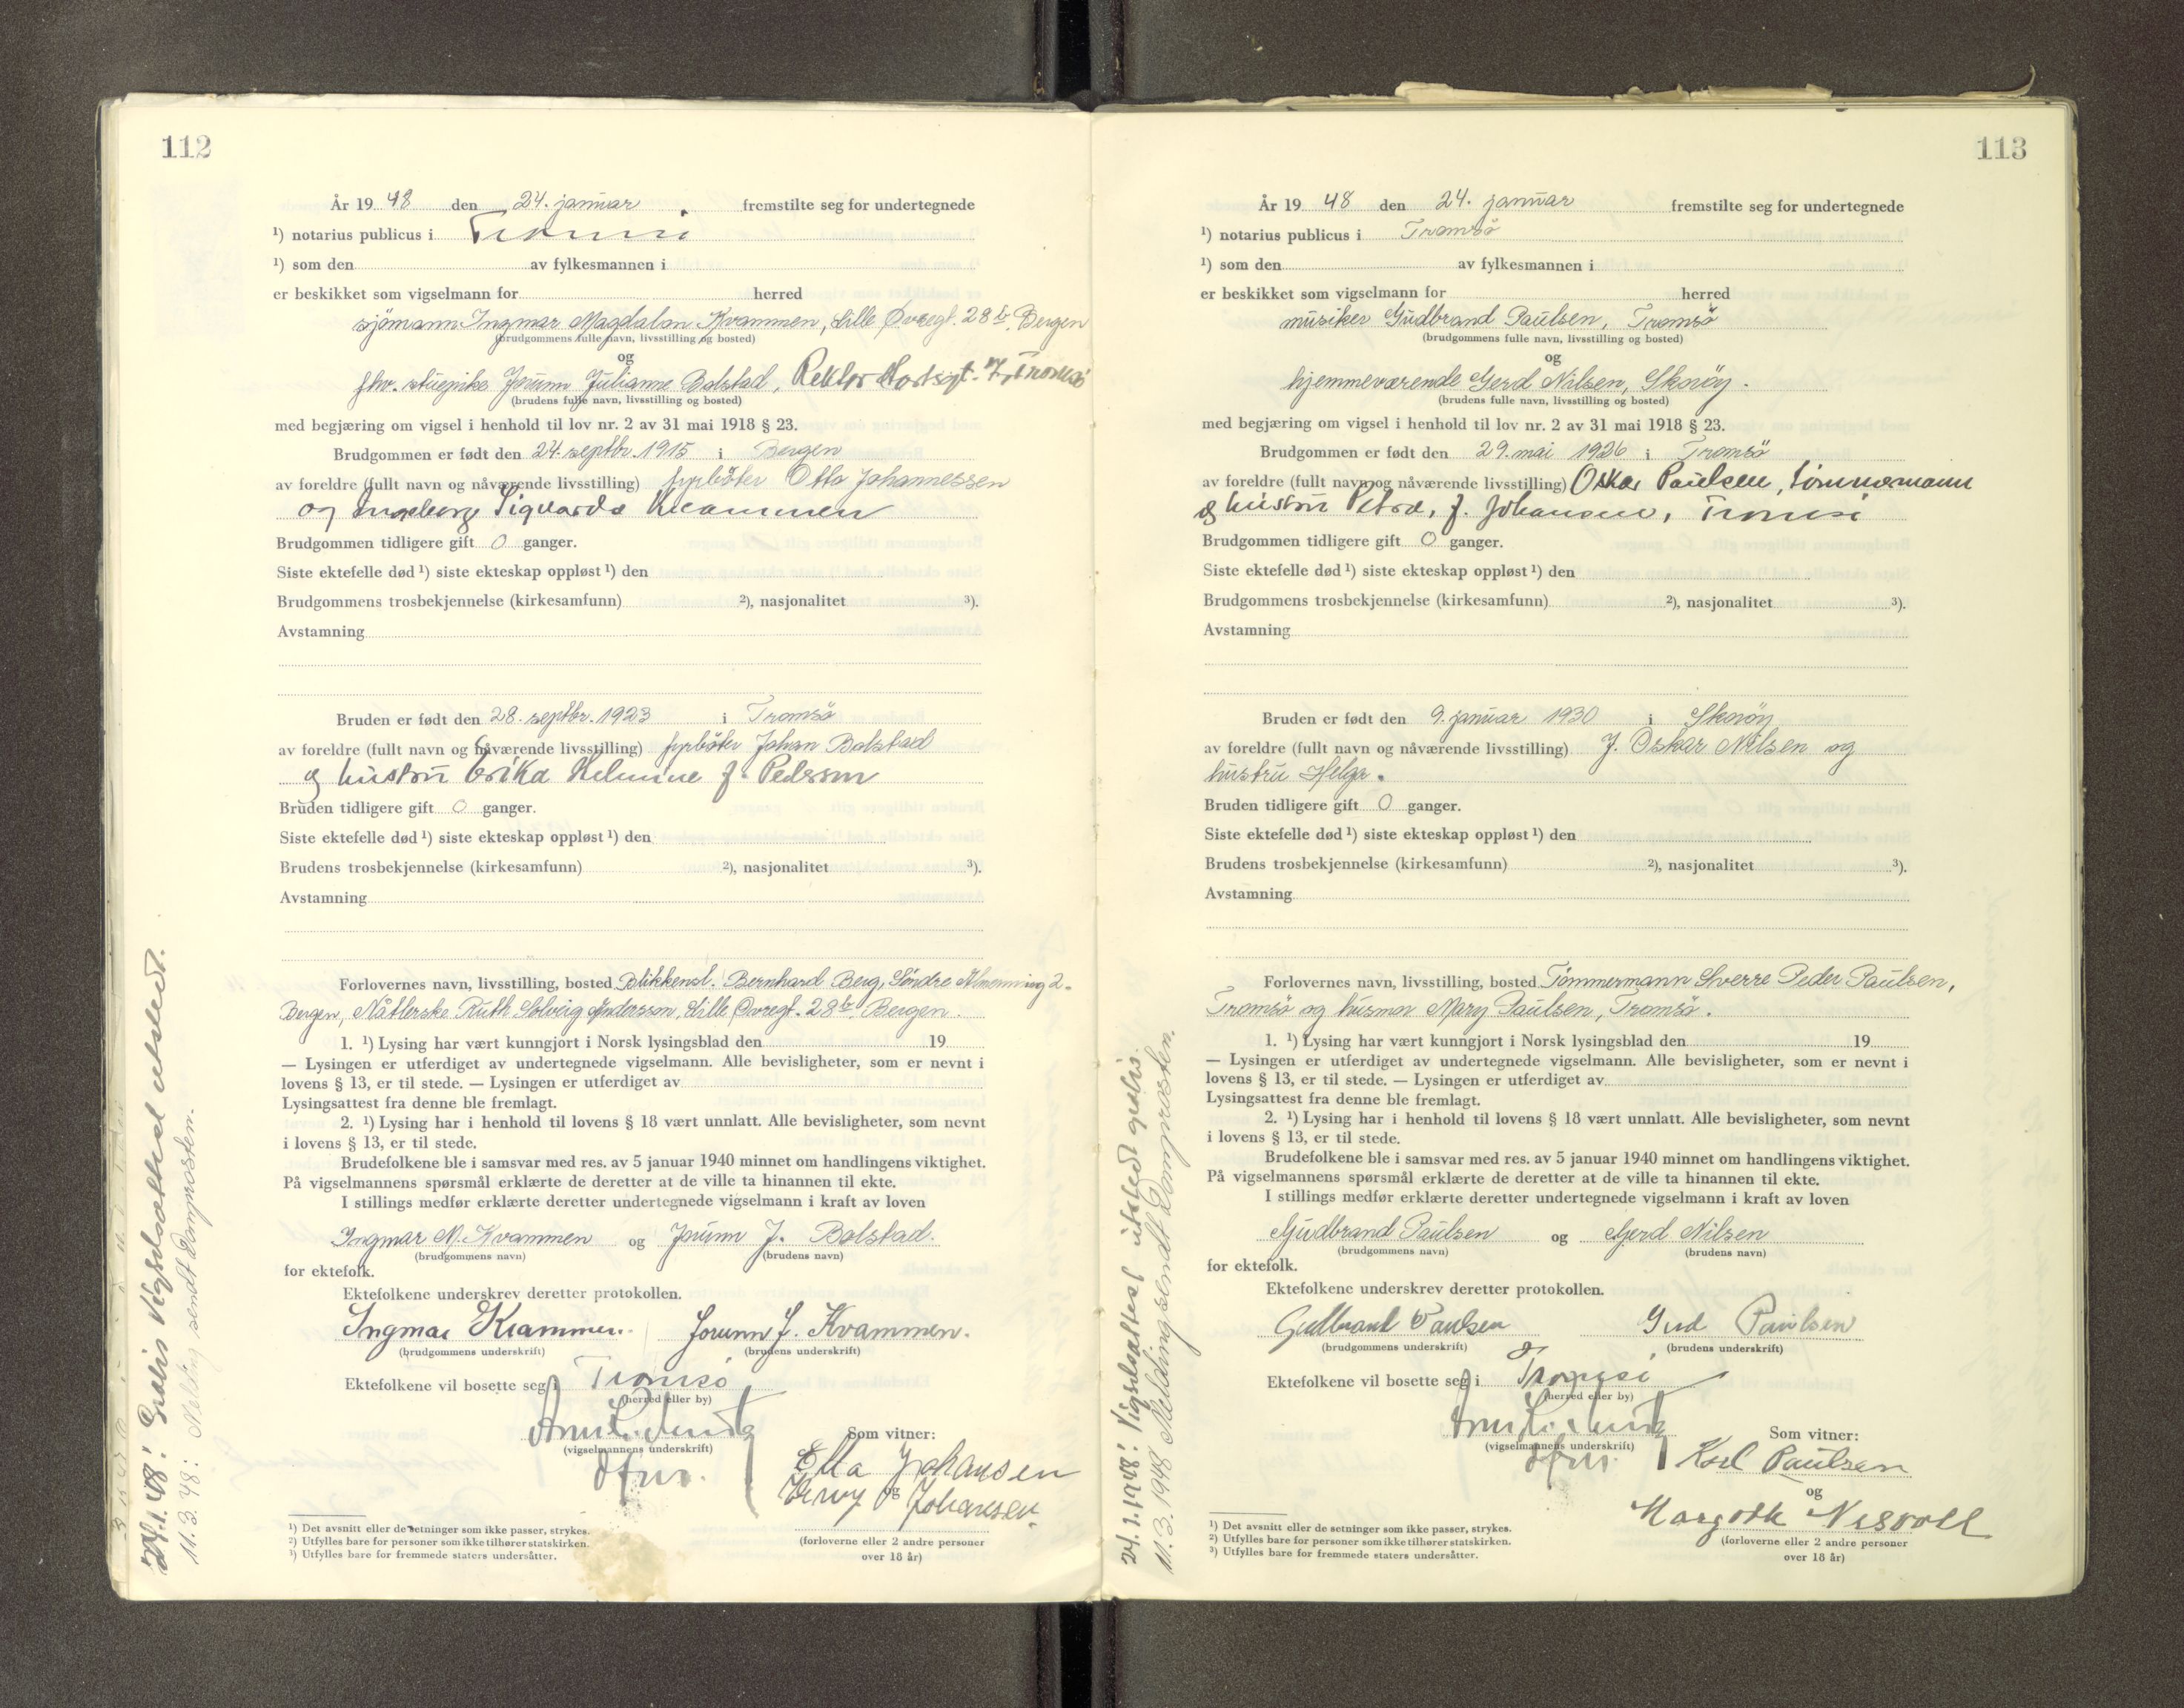 112
År 19 48 den 24. januar fremstilte seg for undertegnede
¹) notarius publicus i Tromsö
¹) som den av fylkesmannen i
er beskikket som vigselmann for herred
sjömann Ingmar Magdalon Kvammen, Lille Øvregt. 28 b, Bergen
(brudgommens fulle navn, livsstilling og bosted)
og
fhv. stuepike Jorunn Julianne Bolstad, Rektor Horstsgt. 7, Tromsö
(brudens fulle navn, livsstilling og bosted)
med begjæring om vigsel i henhold til lov nr. 2 av 31 mai 1918 § 23.
Brudgommen er født den 24. septbr. 1915 i Bergen
av foreldre (fullt navn og nåværende livsstilling) fyrböter Otto Johannessen
og Ingeborg Sigvarda Kvammen
Brudgommen tidligere gift 0 ganger.
Siste ektefelle død ¹) siste ekteskap oppløst ¹) den
Brudgommens trosbekjennelse (kirkesamfunn) ²), nasjonalitet ³).
Avstamning
Bruden er født den 28. septbr. 1923 i Tromsö
av foreldre (fullt navn og nåværende livsstilling) fyrböter Johan Bolstad
og hustru Erika Helmine f. Pedersen
Bruden tidligere gift 0 ganger.
Siste ektefelle død ¹) siste ekteskap oppløst ¹) den
Brudens trosbekjennelse (kirkesamfunn) ²), nasjonalitet ³).
Avstamning
Forlovernes navn, livsstilling, bosted Blikkensl. Bernhard Berg, Söndre Almenning 2-
Bergen, Nåtlerske Ruth Solveig Anderssen, Lille Øvregt. 28 b, Bergen.
1. ¹) Lysing har vært kunngjort i Norsk lysingsblad den 19
— Lysingen er utferdiget av undertegnede vigselmann. Alle bevisligheter, som er nevnt i
lovens § 13, er til stede. — Lysingen er utferdiget av
Lysingsattest fra denne ble fremlagt.
2. ¹) Lysing har i henhold til lovens § 18 vært unnlatt. Alle bevisligheter, som nevnt
i lovens § 13, er til stede.
Brudefolkene ble i samsvar med res. av 5 januar 1940 minnet om handlingens viktighet.
På vigselmannens spørsmål erklærte de deretter at de ville ta hinannen til ekte.
I stillings medfør erklærte deretter undertegnede vigselmann i kraft av loven
Ingmar M. Kvammen og Jorunn J. Bolstad.
(brudgommens navn) (brudens navn)
for ektefolk.
Ektefolkene underskrev deretter protokollen.
Ingmar Kvammen. Jorunn J. Kvammen.
(brudgommens underskrift) (brudens underskrift)
Ektefolkene vil bosette seg i Tromsö
(herred eller by)
(vigselmannens underskrift)
Som vitner:
Ella Johansen
og
Johansen
(forloverne eller 2 andre personer
over 18 år)
¹) Det avsnitt eller de setninger som ikke passer, strykes.
²) Utfylles bare for personer som ikke tilhører statskirken.
³) Utfylles bare for fremmede staters undersåtter.
24.1.48: Gratis vigselsattest utstedt.
11.3.48: Melding sendt Domprosten.
113
År 19 48 den 24. januar fremstilte seg for undertegnede
¹) notarius publicus i Tromsö
¹) som den av fylkesmannen i
er beskikket som vigselmann for herred
musiker Gudbrand Paulsen, Tromsö
(brudgommens fulle navn, livsstilling og bosted)
og
hjemmeværende Gerd Nilsen, Skorøy.
(brudens fulle navn, livsstilling og bosted)
med begjæring om vigsel i henhold til lov nr. 2 av 31 mai 1918 § 23.
Brudgommen er født den 29. mai 1926 i Tromsö
av foreldre (fullt navn og nåværende livsstilling) Oskar Paulsen, tömmermann
og hustru Petra, f. Johansen, Tromsö
Brudgommen tidligere gift 0 ganger.
Siste ektefelle død ¹) siste ekteskap oppløst ¹) den
Brudgommens trosbekjennelse (kirkesamfunn) ²), nasjonalitet ³).
Avstamning
Bruden er født den 9. januar 1930 i Skorøy
av foreldre (fullt navn og nåværende livsstilling) J. Oskar Nilsen og
hustru Helga.
Bruden tidligere gift 0 ganger.
Siste ektefelle død ¹) siste ekteskap oppløst ¹) den
Brudens trosbekjennelse (kirkesamfunn) ²), nasjonalitet ³).
Avstamning
Forlovernes navn, livsstilling, bosted Tömmermann Sverre Peder Paulsen,
Tromsö og husmor Mary Paulsen, Tromsö.
1. ¹) Lysing har vært kunngjort i Norsk lysingsblad den 19
— Lysingen er utferdiget av undertegnede vigselmann. Alle bevisligheter, som er nevnt i
lovens § 13, er til stede. — Lysingen er utferdiget av
Lysingsattest fra denne ble fremlagt.
2. ¹) Lysing har i henhold til lovens § 18 vært unnlatt. Alle bevisligheter, som nevnt
i lovens § 13, er til stede.
Brudefolkene ble i samsvar med res. av 5 januar 1940 minnet om handlingens viktighet.
På vigselmannens spørsmål erklærte de deretter at de ville ta hinannen til ekte.
I stillings medfør erklærte deretter undertegnede vigselmann i kraft av loven
Gudbrand Paulsen og Gerd Nilsen
(brudgommens navn) (brudens navn)
for ektefolk.
Ektefolkene underskrev deretter protokollen.
Gudbrand Paulsen Gerd Paulsen
(brudgommens underskrift) (brudens underskrift)
Ektefolkene vil bosette seg i Tromsö
(herred eller by)
(vigselmannens underskrift)
Som vitner:
Karl Paulsen
og
Margoth Nesvoll
(forloverne eller 2 andre personer
over 18 år)
¹) Det avsnitt eller de setninger som ikke passer, strykes.
²) Utfylles bare for personer som ikke tilhører statskirken.
³) Utfylles bare for fremmede staters undersåtter.
24.1.1948: Vigselsattest utstedt gratis.
11.3.1948 Melding sendt Domprosten.